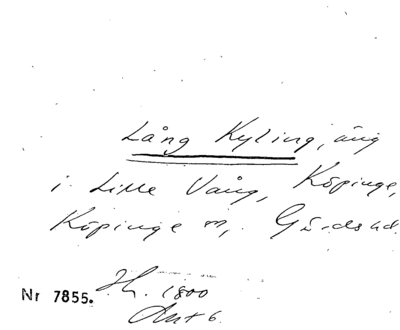 Lång Kyling, äng
i Lille Vång, Köpinge,
Köpinge sn, Gärds hd.
Nr 7855. Hl. 1800
Akt 6